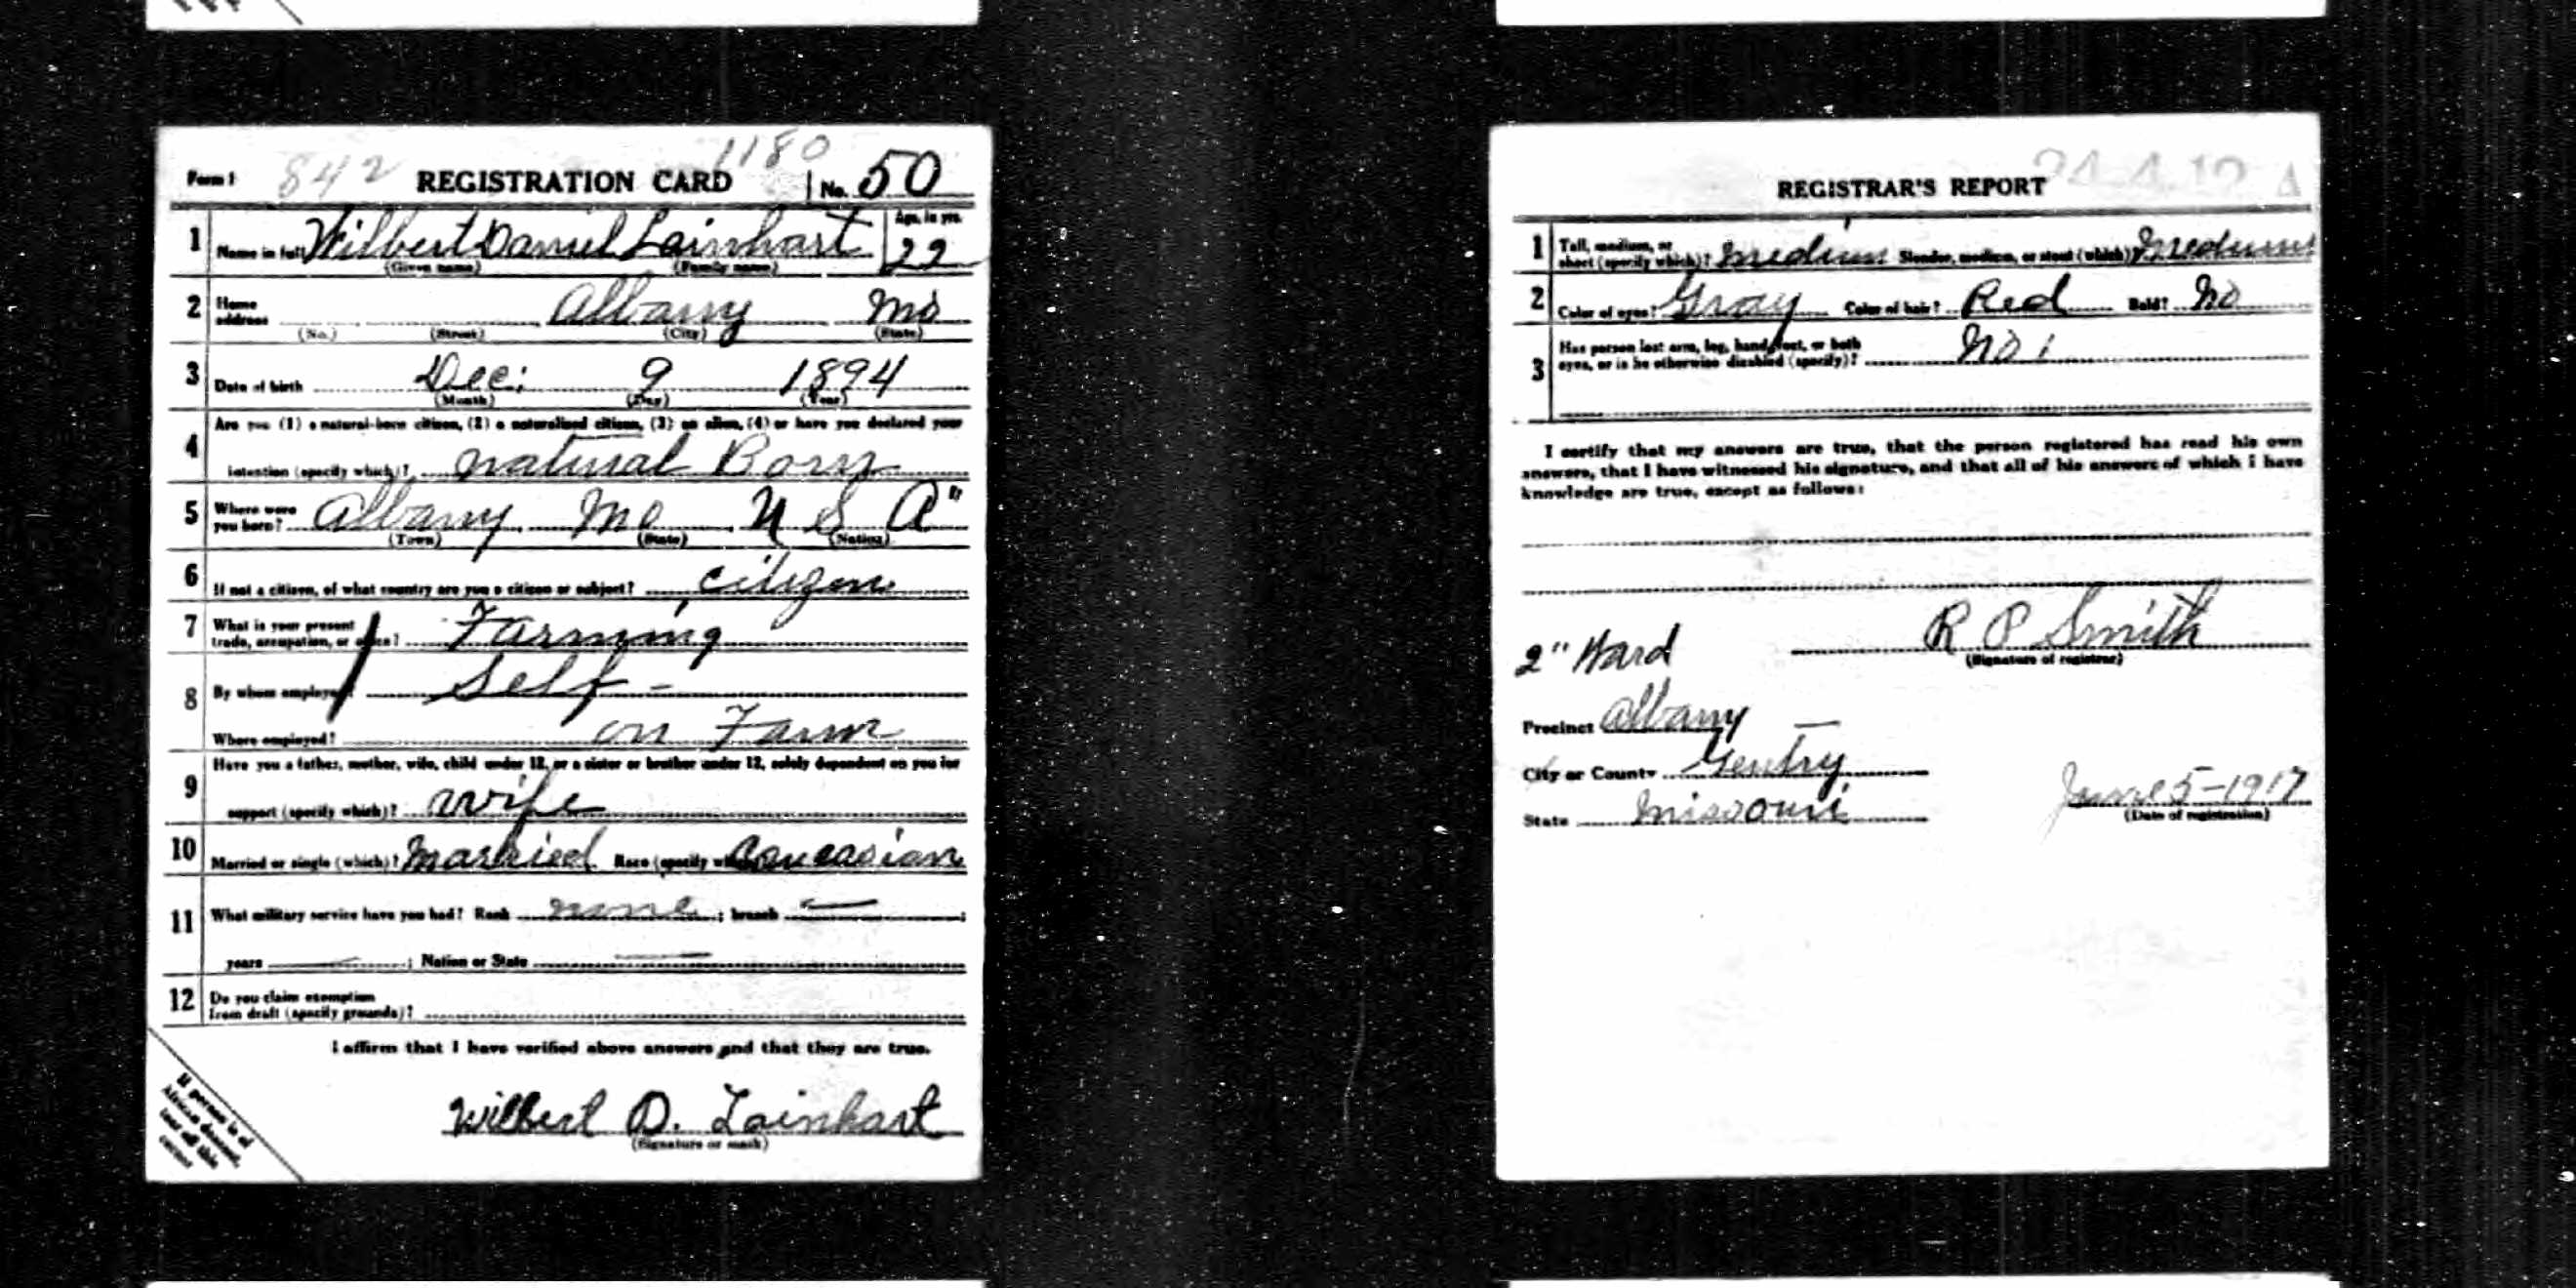 Form 1 842 REGISTRATION CARD 1180 No. 50
1 Name in full Wilbert Daniel Lainhart Age, in yrs. 22
(Given name) (Family name)
2 Home address Albany Mo
(No.) (Street) (City) (State)
3 Date of birth Dec. 9 1894
(Month) (Day) (Year)
4 Are you (1) a natural-born citizen, (2) a naturalized citizen, (3) an alien, (4) or have you declared your
intention (specify which)? natural Born
5 Where were you born? Albany Mo U S A"
(Town) (State) (Nation)
6 If not a citizen, of what country are you a citizen or subject? citizen
7 What is your present trade, occupation, or office? Farming
8 By whom employed? Self -
Where employed? on Farm
9 Have you a father, mother, wife, child under 12, or a sister or brother under 12, solely dependent on you for
support (specify which)? wife
10 Married or single (which)? Married Race (specify which)? Caucasian
11 What military service have you had? Rank none ; branch — ;
years — ; Nation or State —
12 Do you claim exemption from draft (specify grounds)?
I affirm that I have verified above answers and that they are true.
Wilbert D. Lainhart
(Signature or mark)
If person is of
African descent,
tear off this
corner
REGISTRAR'S REPORT 24-4-12 A
1 Tall, medium, or short (specify which)? medium Slender, medium, or stout (which)? medium
2 Color of eyes? Gray Color of hair? Red Bald? No
3 Has person lost arm, leg, hand, foot, or both eyes, or is he otherwise disabled (specify)? No.
I certify that my answers are true, that the person registered has read his own
answers, that I have witnessed his signature, and that all of his answers of which I have
knowledge are true, except as follows:
R P Smith
(Signature of registrar)
2" Ward
Precinct Albany —
City or County Gentry
State Missouri
June 5-1917
(Date of registration)